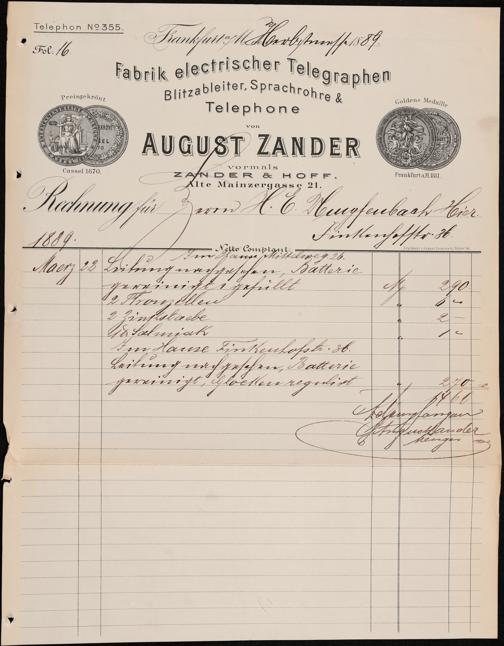 Telephon No 355.
Fol. 16
Frankfurt a/M. Herbstmesse 1889.
Fabrik electrischer Telegraphen
Blitzableiter, Sprachrohre &
Telephone
von
AUGUST ZANDER
vormals
ZANDER & HOFF.
Alte Mainzergasse 21.
Preisgekrönt
Cassel 1870.
Goldene Medaille
Frankfurt a. M. 1881.
Rechnung für Herrn H. E. Hier.
Finkenhofstr 36
1889.
Netto Comptant.
Im Haus 26.
Maerz 22 Leitung nachgesehen, Batterie
gereinigt & gefüllt M 2 90
2 " 6 -
2 Zinkstaebe " 2 -
Salmiak " 1 -
Im Hause Finkenhofstr. 36.
Leitung nachgesehen, Batterie
gereinigt, Glocken regulirt " 2 70
14 60
Empfangen
August Zander